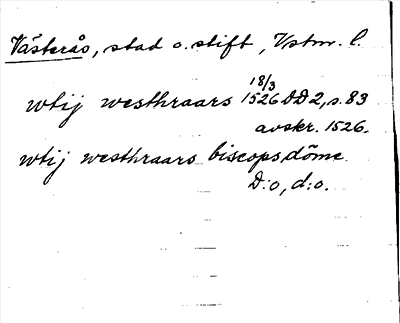 Västerås, stad o. stift, Vstm. l.
18/3
wtij westhraars 1526 DD2, s. 83
avskr. 1526.
wtij westhraars biscopsdöme
D:o, d:o.